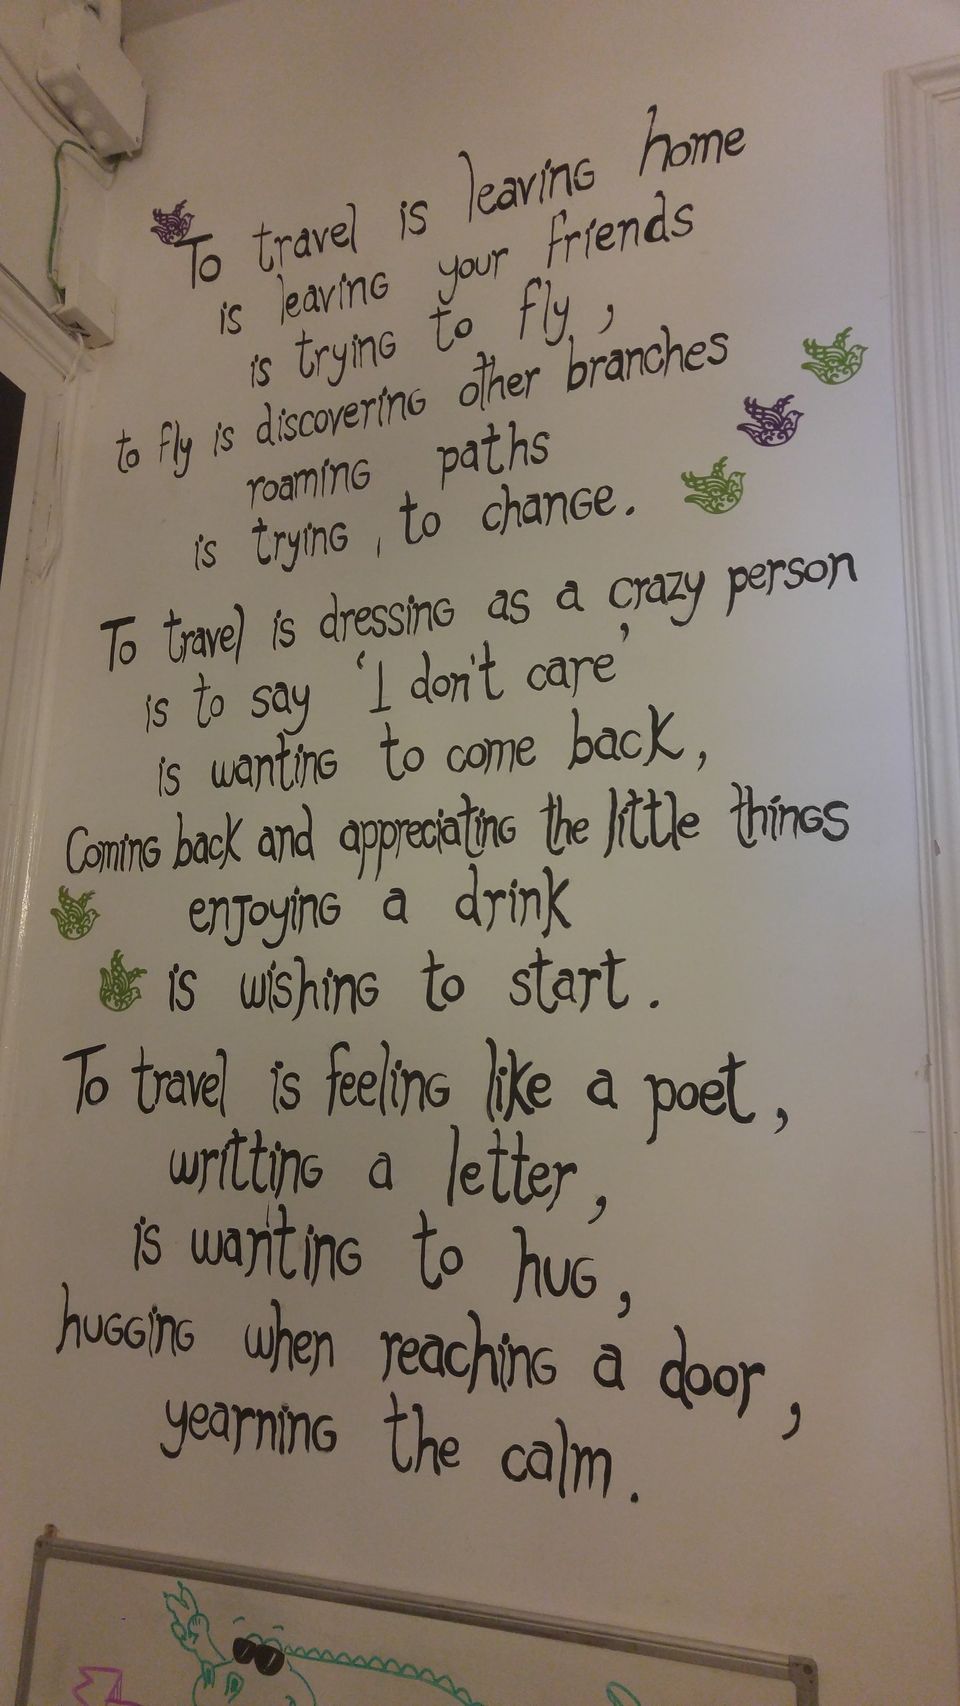 To travel is leaving home
is leaving your friends
is trying to fly,
to fly is discovering other branches
roaming paths
is trying, to change.
To travel is dressing as a crazy person
is to say 'I don't care'
is wanting to come back,
Coming back and appreciating the little things
enjoying a drink
is wishing to start.
To travel is feeling like a poet,
writting a letter,
is wanting to hug,
hugging when reaching a door,
yearning the calm.